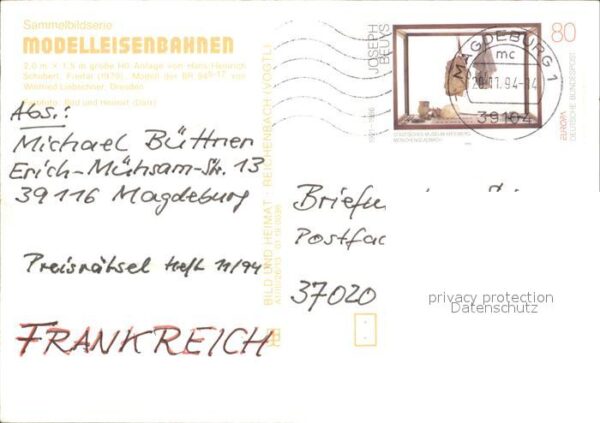 Sammelbildserie
MODELLEISENBAHNEN
2,0 m × 1,5 m große H0-Anlage von Hans-Heinrich
Schubert, Freital (1979). Modell der BR
Winfried Liebschner, Dresden
Bild und Heimat
Abs.:
Michael Büttner
Erich-Mühsam-Str. 13
39116 Magdeburg
Preisrätsel Heft 11/94
FRANKREICH
BILD UND HEIMAT · REICHENBACH (VOGTL)
JOSEPH
BEUYS
80
EUROPA
DEUTSCHE BUNDESPOST
MAGDEBURG 1
mc
39104
Postfac
37020
privacy protection
Datenschutz